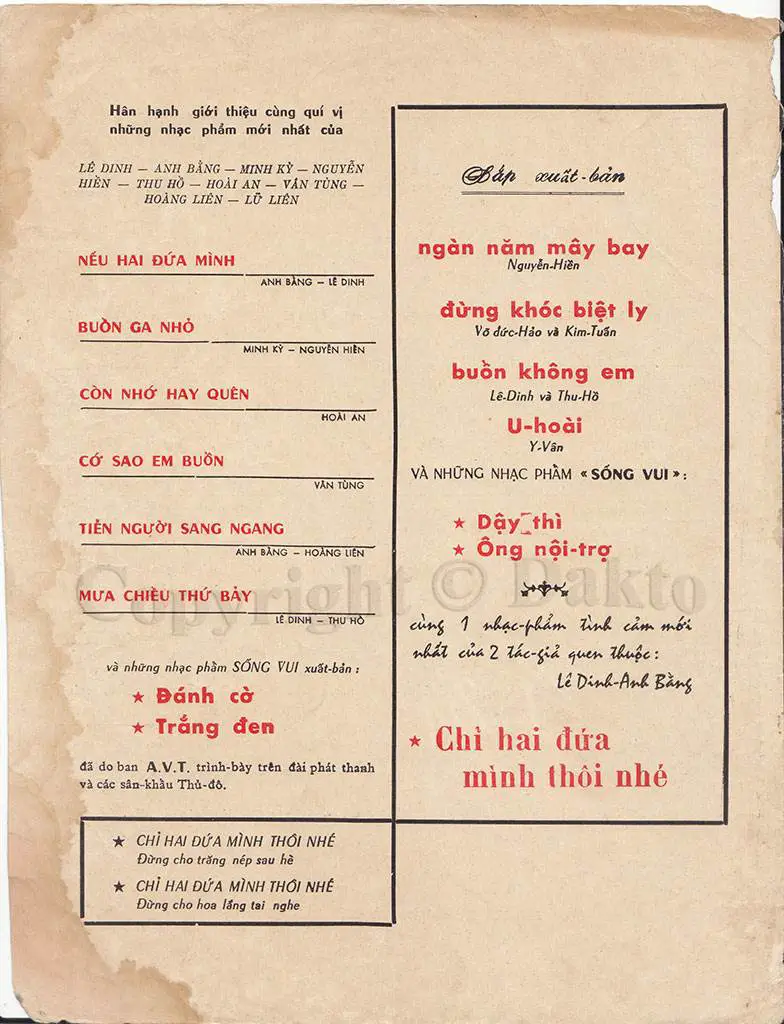 Hân hạnh giới thiệu cùng quí vị
những nhạc phẩm mới nhất của
LÊ DINH — ANH BẰNG — MINH KỲ — NGUYỄN
HIỀN — THU HỒ — HOÀI AN — VĂN TÙNG —
HOÀNG LIÊN — LỮ LIÊN
NẾU HAI ĐỨA MÌNH
ANH BẰNG — LÊ DINH
BUỒN GA NHỎ
MINH KỲ — NGUYỄN HIỀN
CÒN NHỚ HAY QUÊN
HOÀI AN
CỚ SAO EM BUỒN
VĂN TÙNG
TIỄN NGƯỜI SANG NGANG
ANH BẰNG — HOÀNG LIÊN
MƯA CHIỀU THỨ BẢY
LÊ DINH — THU HỒ
và những nhạc phẩm SỐNG VUI xuất-bản :
★ Đánh cờ
★ Trắng đen
đã do ban A.V.T. trình-bày trên đài phát thanh
và các sân-khấu Thủ-đô.
★ CHỈ HAI ĐỨA MÌNH THÔI NHÉ
Đừng cho trăng nép sau hè
★ CHỈ HAI ĐỨA MÌNH THÔI NHÉ
Đừng cho hoa lắng tai nghe
Sắp xuất-bản
ngàn năm mây bay
Nguyễn-Hiền
đừng khóc biệt ly
Võ đức-Hảo và Kim-Tuấn
buồn không em
Lê-Dinh và Thu-Hồ
U-hoài
Y-Vân
VÀ NHỮNG NHẠC PHẨM « SỐNG VUI » :
★ Dậy thì
★ Ông nội-trợ
cùng 1 nhạc-phẩm tình cảm mới
nhất của 2 tác-giả quen thuộc :
Lê Dinh-Anh Bằng
★ Chỉ hai đứa
mình thôi nhé
Copyright © Dakto